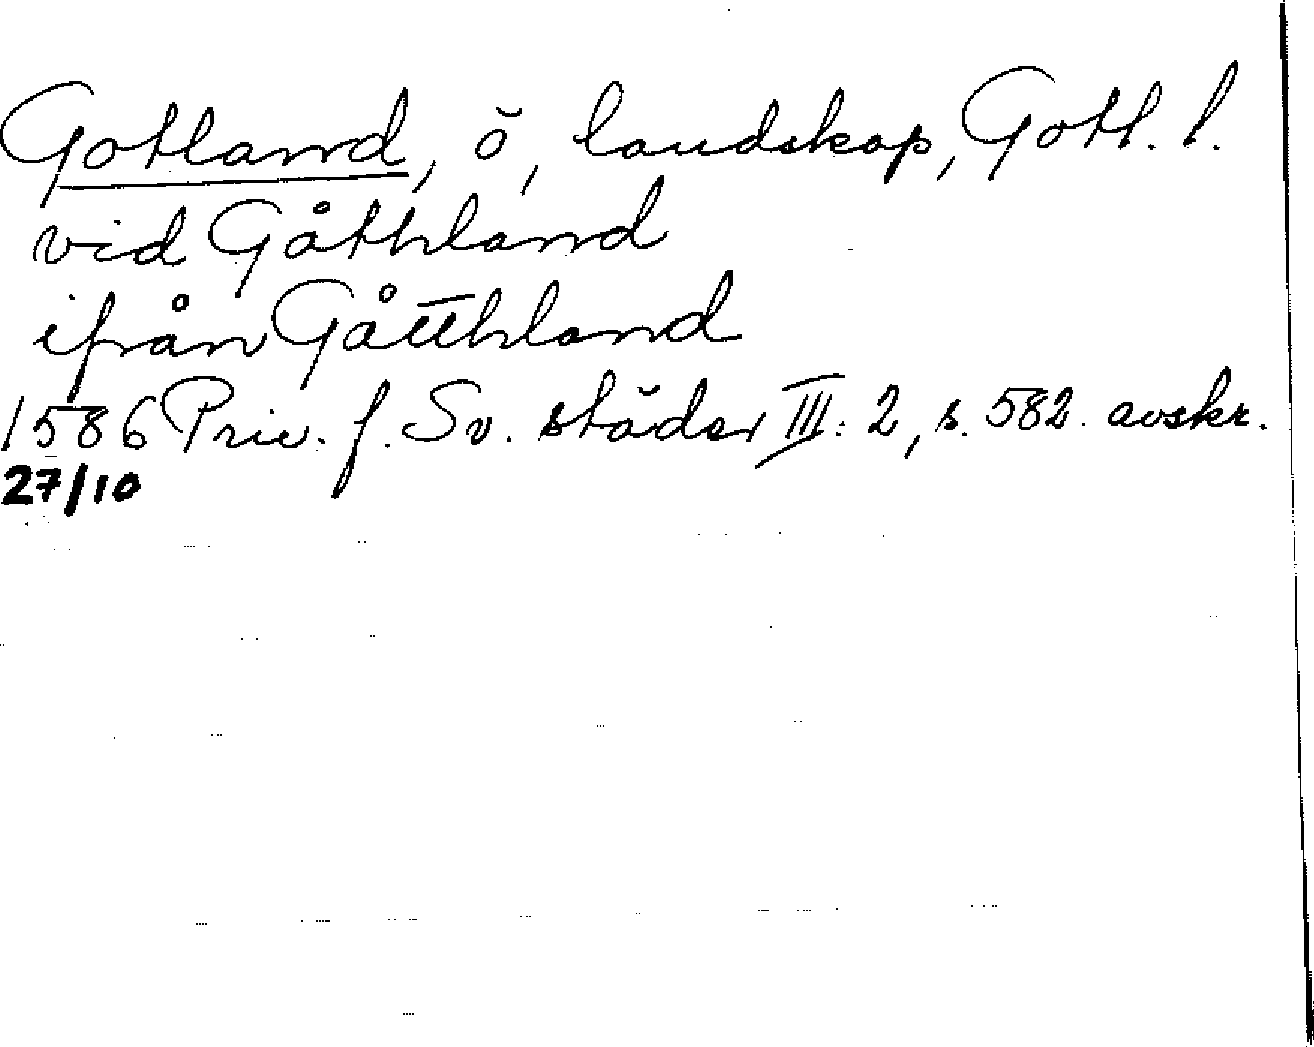 Gotland, ö, landskap, Gotl. l.
vid Gåthland
ifrån Gåtthland
1586 Priv. f. Sv. städer III: 2, s. 582. avskr.
27/10